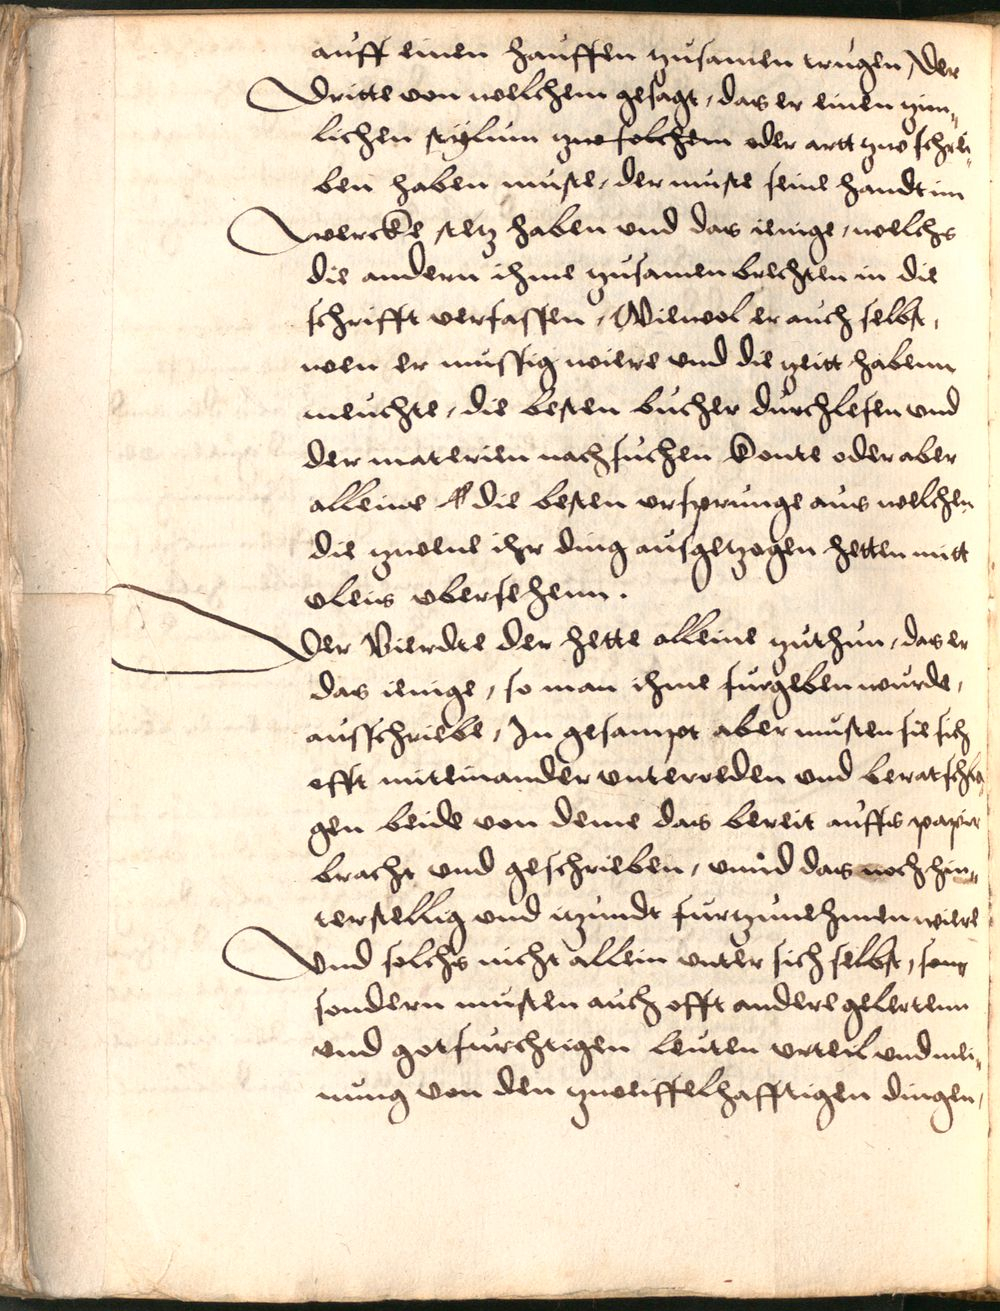 auff einen hauffen zusamen trugen, Der
Dritte von welchem gesagt, das er einen zim-
lichen stylum zw solchem oder artt zw schrei-
ben haben muste, der muste seine handt im
wercke stetz haben vnd das ienige, welchs
die andern ihme zusamen brechten in die
schrifft verfassen, Wiewol er auch selbst,
wen er mussig wiere vnd die zeitt habenn
meuchte, die besten bucher durchlesen vnd
der materien nachsuchen konte oder aber
alleine die besten vrsprunge aus welchen
die zwene ihr ding ausgetzogen hetten mitt
vleis vbersehenn.
Der Vierdte der hette alleine zuthun, das er
das ienige, so man ihme furgeben wurde,
ausschriebe, In gesampt aber musten sie sich
offt miteinander vnterreden vnd beratschla-
gen beide von deme das bereit auffs papir
bracht vnd geschrieben, vnnd das noch hin-
terstellig vnd itzundt furtzunehmen wiere
Vnd solchs nicht allein vnter sich selbst, son
sondern musten auch offt andere gelertenn
vnd gotfurchtigen leuten vrteil vnd mei-
nung von den zweiffelhafftigen dingen,